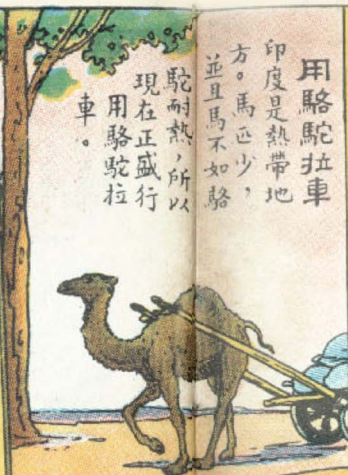 用駱駝拉車
印度是熱帶地
方。馬匹少，
並且馬不如駱
駝耐熱，所以
現在正盛行
用駱駝拉
車。